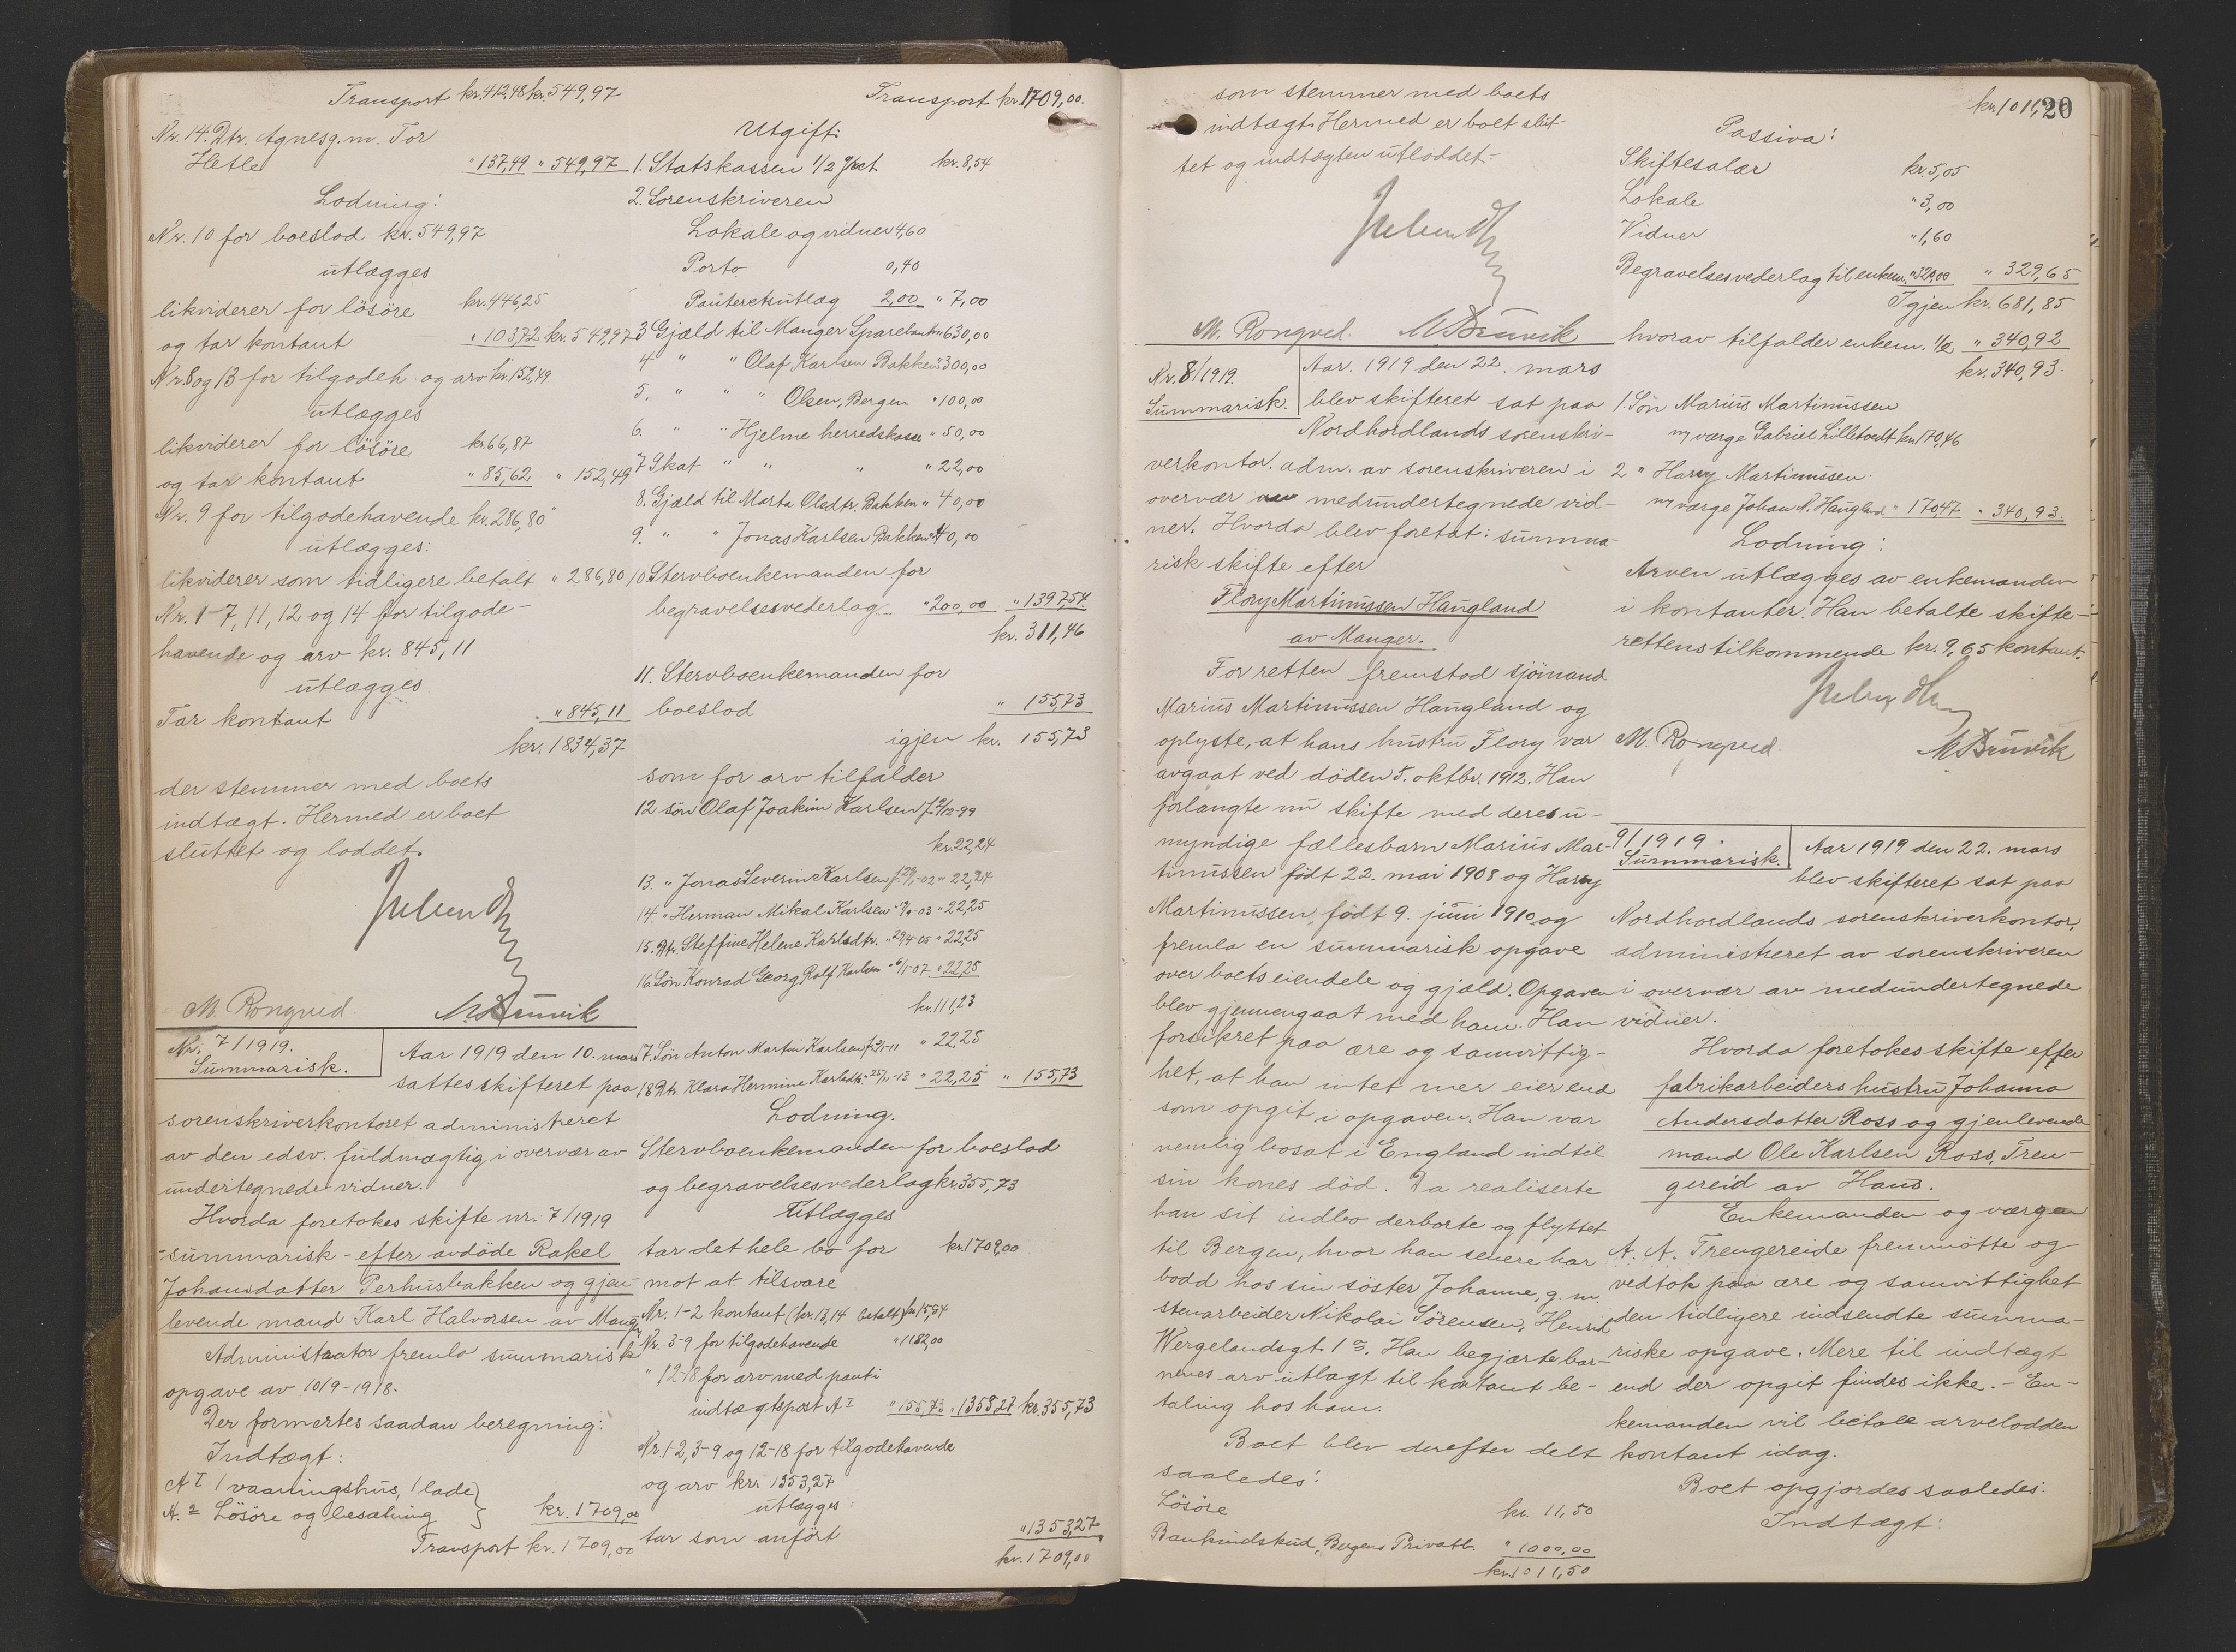 Transport kr. 412,48 kr. 549,97
Nr. 14. Dtr. Agnes g. m. Tor
Hetle " 137,49 " 549,97
Lodning:
Nr. 10 for boeslod kr. 549,97
utlægges
likviderer for lösöre kr. 446,25
og tar kontant " 103,72 kr. 549,97
Nr. 8 og 13 for tilgodeh. og arv kr. 152,49
utlægges
likviderer for lösöre kr. 66,87
og tar kontant " 85,62 " 152,49
Nr. 9 for tilgodehavende kr. 286,80
utlægges:
likviderer som tidligere betalt " 286,80
Nr. 1-7, 11, 12 og 14 for tilgode-
havende og arv kr. 845,11
utlægges
Tar kontant " 845,11
kr. 1834,37
der stemmer med boets
indtægt. Hermed er boet
sluttet og loddet.
M. Rongved. M. Brúvik
Nr. 7/1919.
Summarisk.
Aar 1919 den 10. mars
sattes skifteret paa
sorenskriverkontoret administreret
av den edsv. fuldmægtig i overvær av
undertegnede vidner.
Hvorda foretokes skifte nr. 7/1919
- summarisk - efter avdöde Rakel
Johansdatter Perhusbakken og gjen-
levende mand Karl Halvorsen av Manger
Administrator fremla summarisk
opgave av 10/9-1918.
Der formertes saadan beregning:
Indtægt:
A 1 1 vaaningshus, 1 lade
A. 2 Lösöre og besætning kr. 1709,00
Transport kr. 1709,00
Transport kr. 1709,00.
Utgift:
1. Statskassen 1/2 pct kr. 8,54
2. Sorenskriveren
Lokale og vidner 4,60
Porto 0,40
Panteretsutlæg 2,00 " 7,00
3 Gjæld til Manger Sparebank " 630,00
4 " " Olaf Karlsen Bakken " 300,00
5. " " Olsen, Bergen " 100,00
6. " " Hjelme herredskasse " 50,00
7 Skat " " " " 22,00
8. Gjæld til Marta Olsdtr. Bakken " 40,00
9. " " Jonas Karlsen Bakken " 40,00
10 Stervboenkemanden for
begravelsesvederlag " 200,00 " 1397,54
kr. 311,46
11. Stervboenkemanden for
boeslod " 155,73
igjen kr. 155,73
som for arv tilfalder
12 sön Olaf Joakim Karlsen f. 2/12-99
kr. 22,24
13. " Jonas Severin Karlsen f. 29/1-02 " 22,24
14. " Herman Mikal Karlsen " -03 " 22,25
15. Dtr. Steffine Helene Karlsdtr. " 29/4-05 " 22,25
16 Sön Konrad Georg Rolf Karlsen " 6/1-07 " 22,25
kr. 111,23
17. Sön Anton Martin Karlsen f. -11 " 22,25
18 Dtr. Klara Hermine Karlsdtr. 25/11-13 " 22,25 " 155,73
Lodning.
Stervboenkemanden for boeslod
og begravelsesvederlag kr. 355,73
Utlægges
tar det hele bo for kr. 1709,00
mot at tilsvare
Nr. 1-2 kontant (kr. 13,14 betalt) kr. 15,54
Nr. 3-9 for tilgodehavende " 1182,00
" 12-18 for arv med pant i
indtægtspost A 1 " 155,73 " 1353,27 kr. 355,73
Nr. 1-2, 3-9 og 12-18 for tilgodehavende
og arv kr. 1353,27
utlægges:
tar som anfört " 1353,27
kr. 1709,00
20
som stemmer med boets
indtægt. Hermed er boet slut-
tet og indtægten utloddet.-
M. Rongved. M. Brúvik
Nr. 8/1919.
Summarisk.
Aar. 1919 den 22. mars
blev skifteret sat paa
Nordhordlands sorenskri-
verkontor. adm. av sorenskriveren i
overvær av medundertegnede vid-
ner. Hvorda blev foretat: summa-
risk skifte efter
Flory Martinussen Haugland
av Manger.
For retten fremstod sjömand
Marius Martinussen Haugland og
oplyste, at hans hustru Flory var
avgaat ved döden 5. oktbr. 1912. Han
forlangte nu skifte med deres u-
myndige fællesbarn Marius Mar-
tinussen födt 22. mai 1908 og Harry
Martinussen, födt 9. juni 1910 og
fremla en summarisk opgave
over boets eiendele og gjæld. Opgaven
blev gjennemgaat med ham. Han
forsikret paa ære og samvittig-
het, at han intet mer eier end
som opgit i opgaven. Han var
nemlig bosat i England indtil
sin kones död. Da realiserte
han sit indbo derborte og flyttet
til Bergen, hvor han senere har
bodd hos sin söster Johanne, g. m.
stenarbeider Nikolai Sörensen, Henrik
Wergelandsgt. 1 a. Han begjærte bar-
nenes arv utlagt til kontant be-
taling hos ham.
Boet blev derefter delt
saaledes:
Lösöre kr. 11,50
Bankindskud, Bergens Privatb. " 1000,00
kr. 1011,50
kr. 1011,
Passiva:
Skiftesalær kr. 5,05
Lokale " 3,00
Vidner " 1,60
Begravelsesvederlag til enkem. " 320,00 " 329,65
Igjen kr. 681,85
hvorav tilfalder enkem. 1/2 " 340,92
kr. 340,93.
1. Sön Marius Martinussen
m/ værge Gabriel Lilletvedt kr. 170,46
2 " Harry Martinussen
m/ værge Johan N. Haugland " 170,47 " 340,93.
Lodning:
Arven utlægges av enkemanden
i kontanter. Han betalte skifte-
rettens tilkommende kr. 9,65 kontant.
M. Rongved. M. Brúvik
9/1919.
Summarisk.
Aar 1919 den 22. mars
blev skifteret sat paa
Nordhordlands sorenskriverkontor,
administreret av sorenskriveren
i overvær av medundertegnede
vidner.
Hvorda foretokes skifte efter
fabrikarbeiders hustru Johanna
Andersdatter Ross og gjenlevende
mand Ole Karlsen Ross, Tren-
gereid av Haus.
Enkemanden og værgen
A. A. Trengereide fremmötte og
vedtok paa ære og samvittighet
den tidligere indsendte summa-
riske opgave. Mere til indtægt
end der opgit findes ikke. - En-
kemanden vil betale arvelodden
kontant idag.
Boet opgjordes saaledes:
Indtægt: